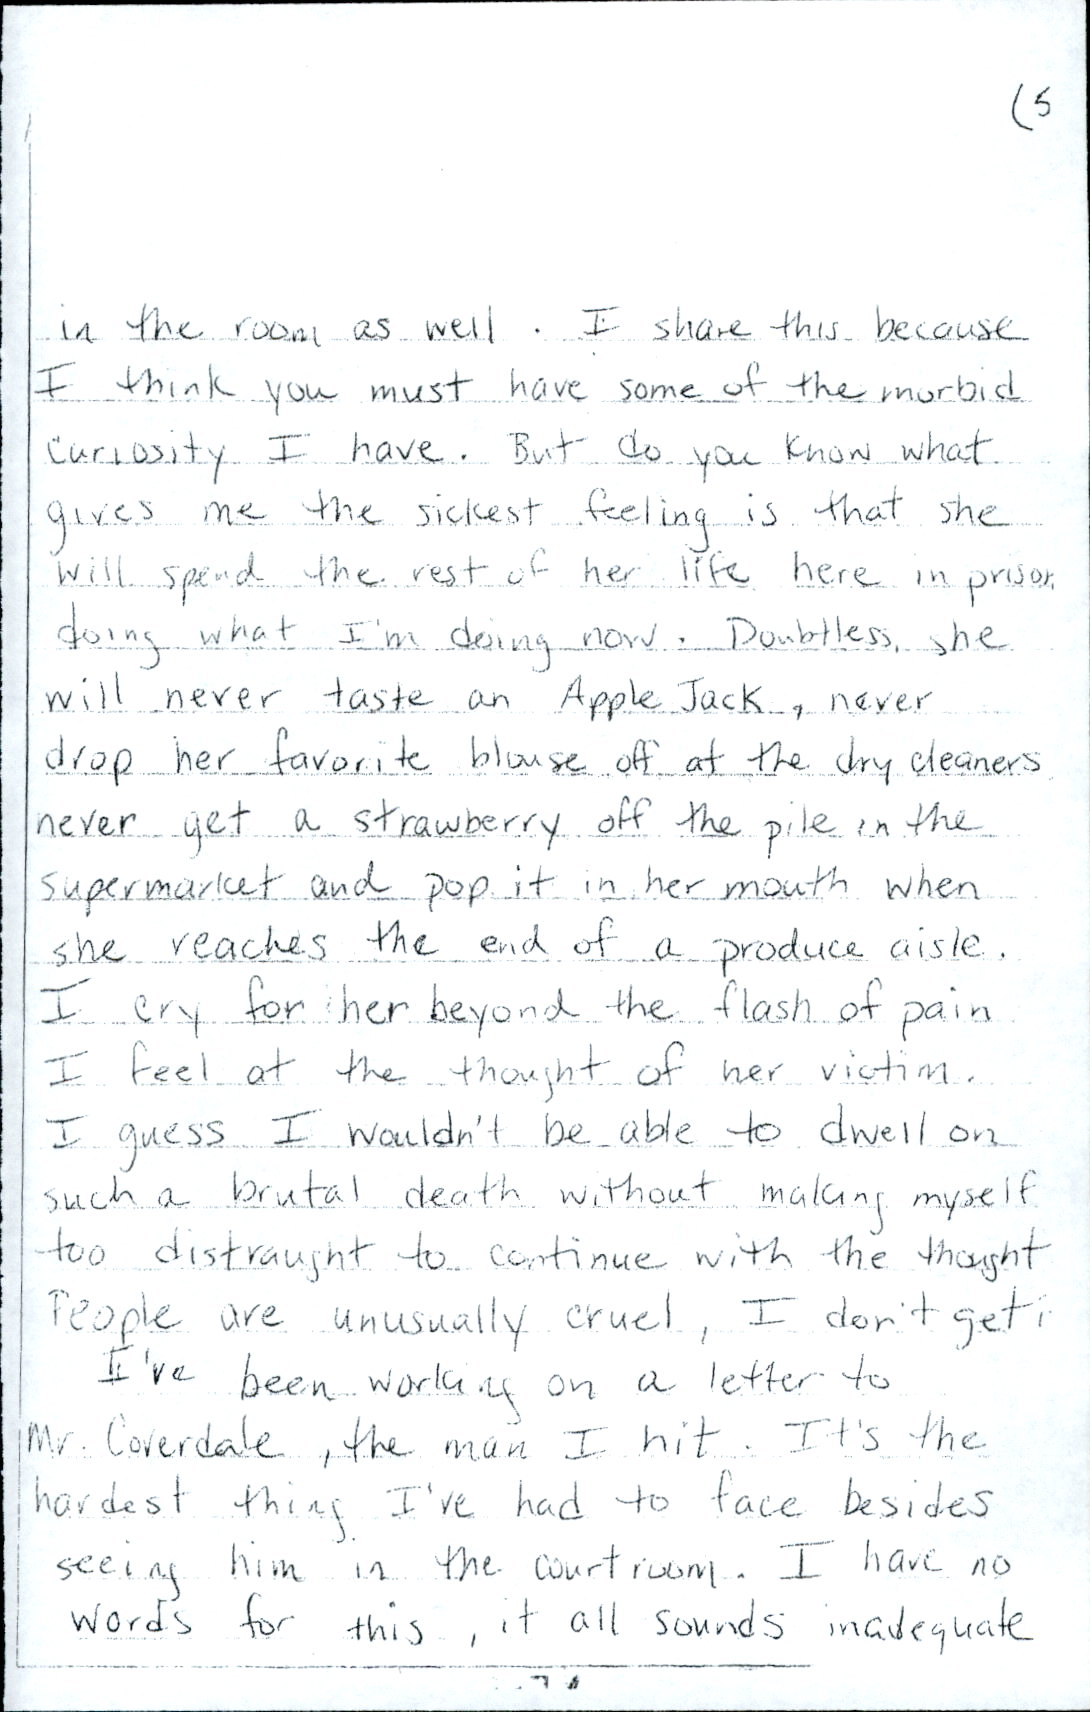 (5
in the room as well. I share this because
I think you must have some of the morbid
curiosity I have. But do you know what
gives me the sickest feeling is that she
will spend the rest of her life here in prison
doing what I'm doing now. Doubtless, she
will never taste an Apple Jack, never
drop her favorite blouse off at the dry cleaners
never get a strawberry off the pile in the
supermarket and pop it in her mouth when
she reaches the end of a produce aisle.
I cry for her beyond the flash of pain
I feel at the thought of her victim.
I guess I wouldn't be able to dwell on
such a brutal death without making myself
too distraught to continue with the thought
People are unusually cruel, I don't get
I've been working on a letter to
Mr. Coverdale, the man I hit. It's the
hardest thing I've had to face besides
seeing him in the courtroom. I have no
words for this, it all sounds inadequate